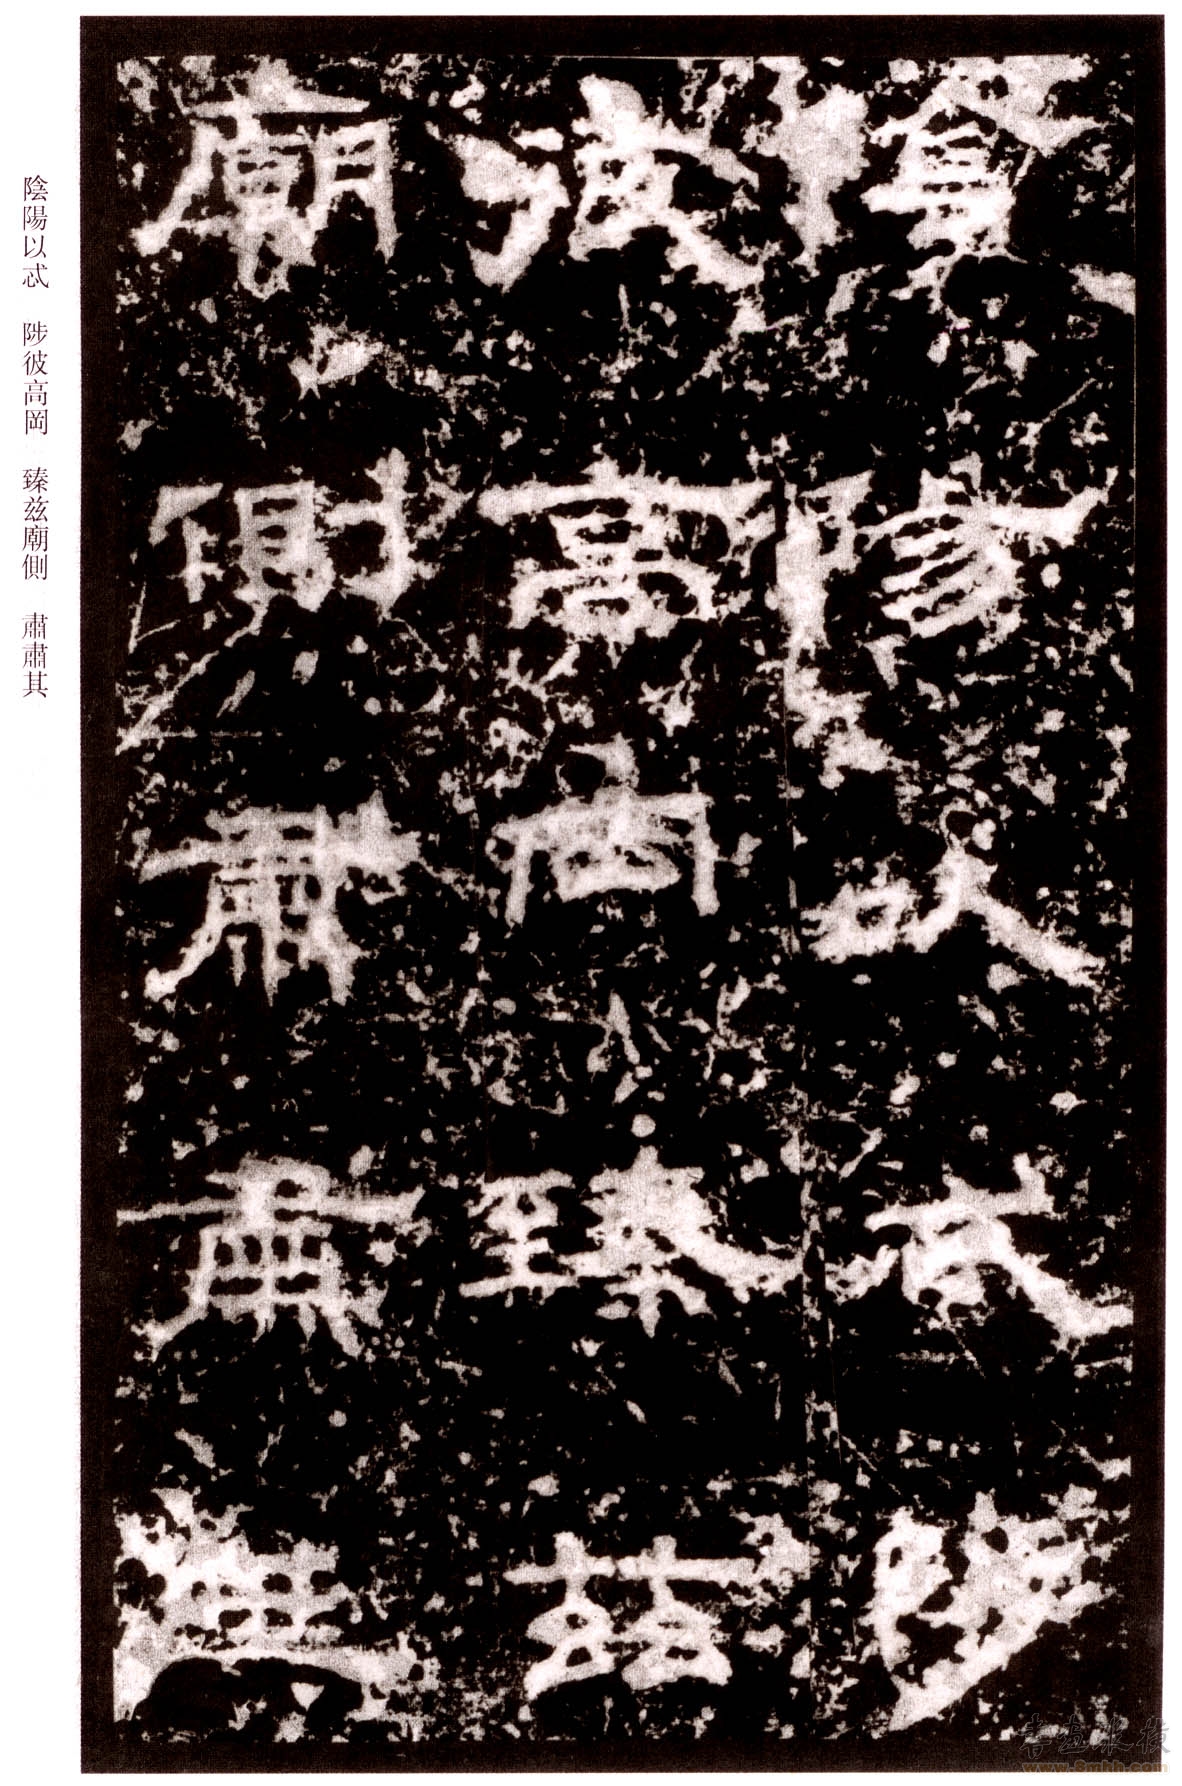 陰陽以忒陟
彼高岡臻茲
廟側肅肅其
陰陽以忒　陟彼高岡　臻兹廟側　肅肅其
www.8mhh.com